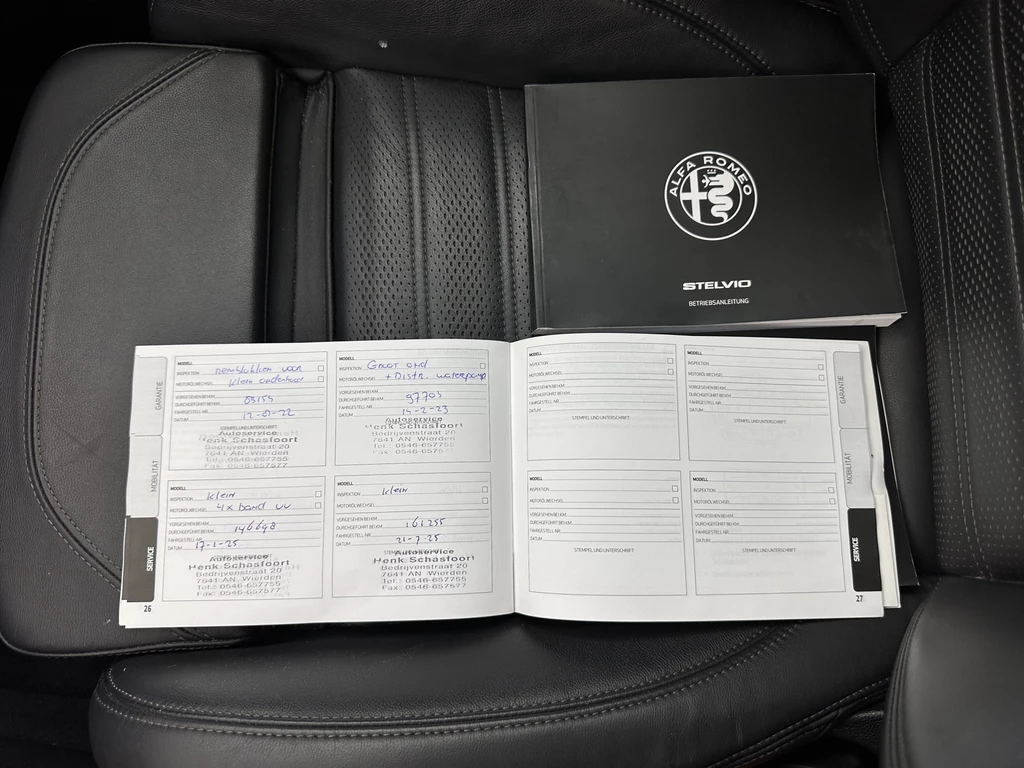 ALFA ROMEO
STELVIO
BETRIEBSANLEITUNG
GARANTIE
MOBILITÄT
SERVICE
26
MODELL
INSPEKTION remblokken voor
MOTORÖLWECHSEL Klein onderhoud
VORGESEHEN BEI KM
DURCHGEFÜHRT BEI KM
FAHRGESTELL-NR.
DATUM
STEMPEL UND UNTERSCHRIFT
Autoservice
Henk Schasfoort
Bedrijvenstraat 20
7641 AN Wierden
Tel.: 0546-657755
Fax: 0546-657577
MODELL
INSPEKTION Groot ond
MOTORÖLWECHSEL + Distr. waterpomp
VORGESEHEN BEI KM
DURCHGEFÜHRT BEI KM 97703
FAHRGESTELL-NR.
DATUM 15-2-23
Autoservice
Henk Schasfoort
Bedrijvenstraat 20
7641 AN Wierden
Tel.: 0546-657755
MODELL
INSPEKTION Klein
MOTORÖLWECHSEL 4x band vv
VORGESEHEN BEI KM
DURCHGEFÜHRT BEI KM 146648
FAHRGESTELL-NR.
DATUM 17-1-25
Autoservice
Henk Schasfoort
Bedrijvenstraat 20
7641 AN Wierden
Tel.: 0546-657755
Fax: 0546-657577
MODELL
INSPEKTION Klein
MOTORÖLWECHSEL
VORGESEHEN BEI KM
DURCHGEFÜHRT BEI KM 161255
FAHRGESTELL-NR.
DATUM 21-7-25
Autoservice
Henk Schasfoort
Bedrijvenstraat 20
7641 AN Wierden
Tel.: 0546-657755
Fax: 0546-657577
MODELL
INSPEKTION
MOTORÖLWECHSEL
VORGESEHEN BEI KM
DURCHGEFÜHRT BEI KM
FAHRGESTELL-NR.
DATUM
STEMPEL UND UNTERSCHRIFT
MODELL
INSPEKTION
MOTORÖLWECHSEL
VORGESEHEN BEI KM
DURCHGEFÜHRT BEI KM
FAHRGESTELL-NR.
DATUM
STEMPEL UND UNTERSCHRIFT
MODELL
INSPEKTION
MOTORÖLWECHSEL
VORGESEHEN BEI KM
DURCHGEFÜHRT BEI KM
FAHRGESTELL-NR.
DATUM
STEMPEL UND UNTERSCHRIFT
MODELL
INSPEKTION
MOTORÖLWECHSEL
VORGESEHEN BEI KM
DURCHGEFÜHRT BEI KM
FAHRGESTELL-NR.
DATUM
STEMPEL UND UNTERSCHRIFT
GARANTIE
MOBILITÄT
SERVICE
27